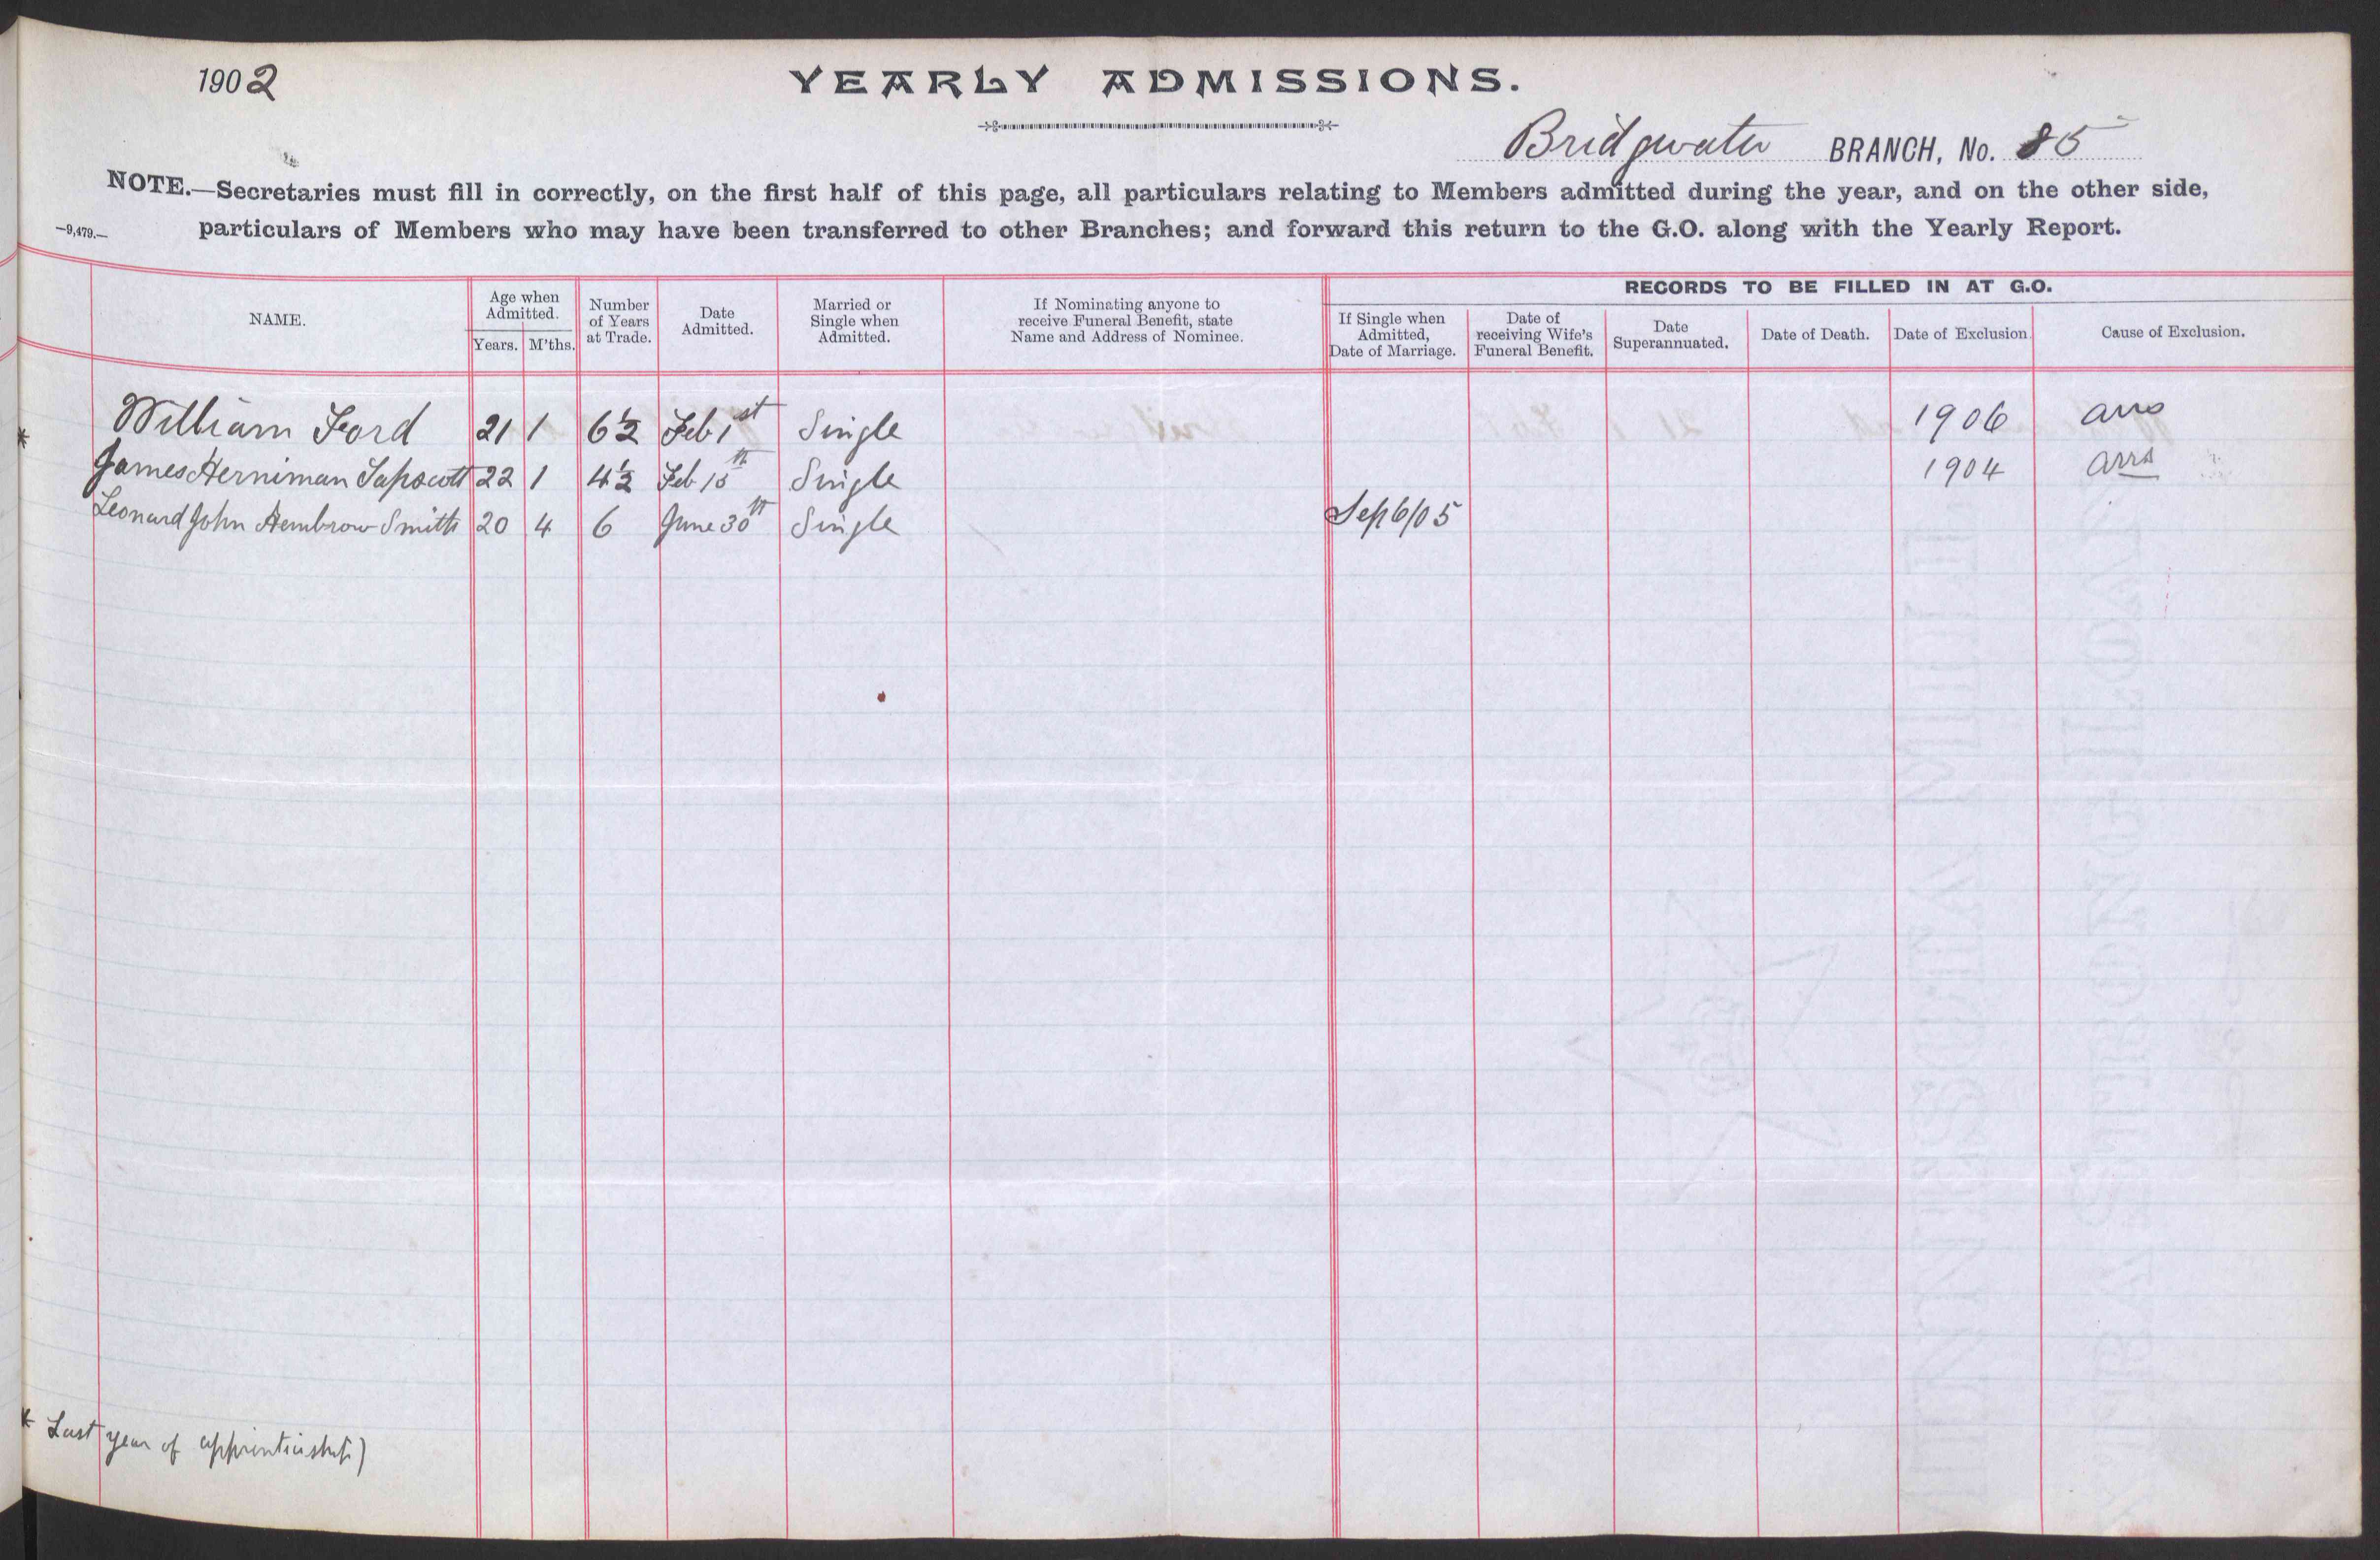 1902
YEARLY ADMISSIONS.
Bridgwater BRANCH, No. 85
NOTE.—Secretaries must fill in correctly, on the first half of this page, all particulars relating to Members admitted during the year, and on the other side,
—9,479.— particulars of Members who may have been transferred to other Branches; and forward this return to the G.O. along with the Yearly Report.
RECORDS TO BE FILLED IN AT G.O.
NAME. Age when Admitted. Years. M'ths. Number of Years at Trade. Date Admitted. Married or Single when Admitted. If Nominating anyone to receive Funeral Benefit, state Name and Address of Nominee. If Single when Admitted, Date of Marriage. Date of receiving Wife's Funeral Benefit. Date Superannuated. Date of Death. Date of Exclusion. Cause of Exclusion.
* William Ford 21 1 6½ Feb 1st Single 1906 arrs
James Herniman Tapscott 22 1 4½ Feb 15th Single 1904 arrs
Leonard John Hembrow Smith 20 4 6 June 30th Single Sep 6/05
* Last year of apprenticeship)